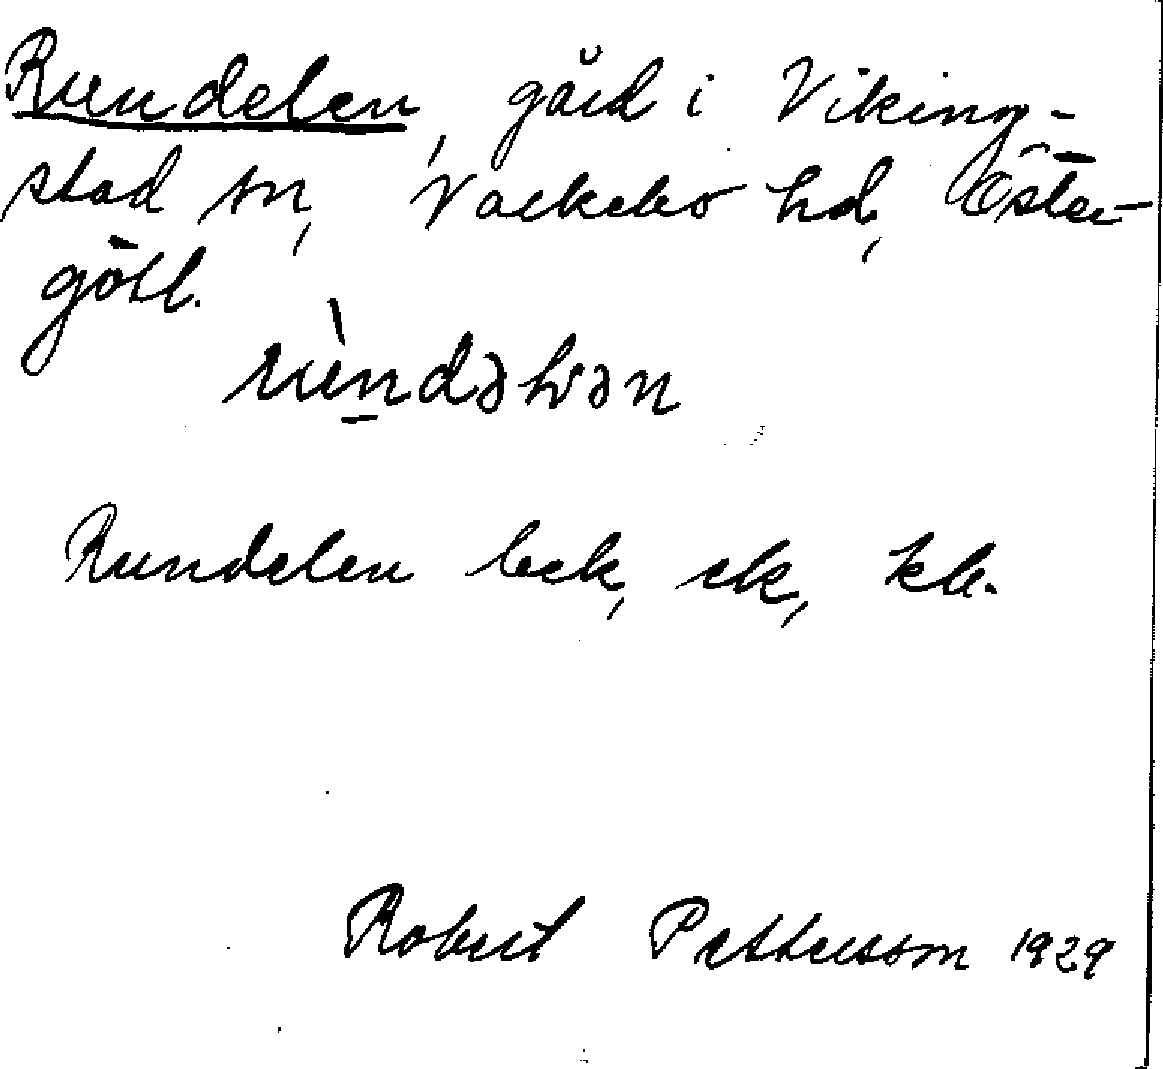 Rundelen, gård i Viking-
stad sn, Valkebo hd, Öster-
götl.
Rundelen bek, ek, kb.
Robert Pettersson 1929